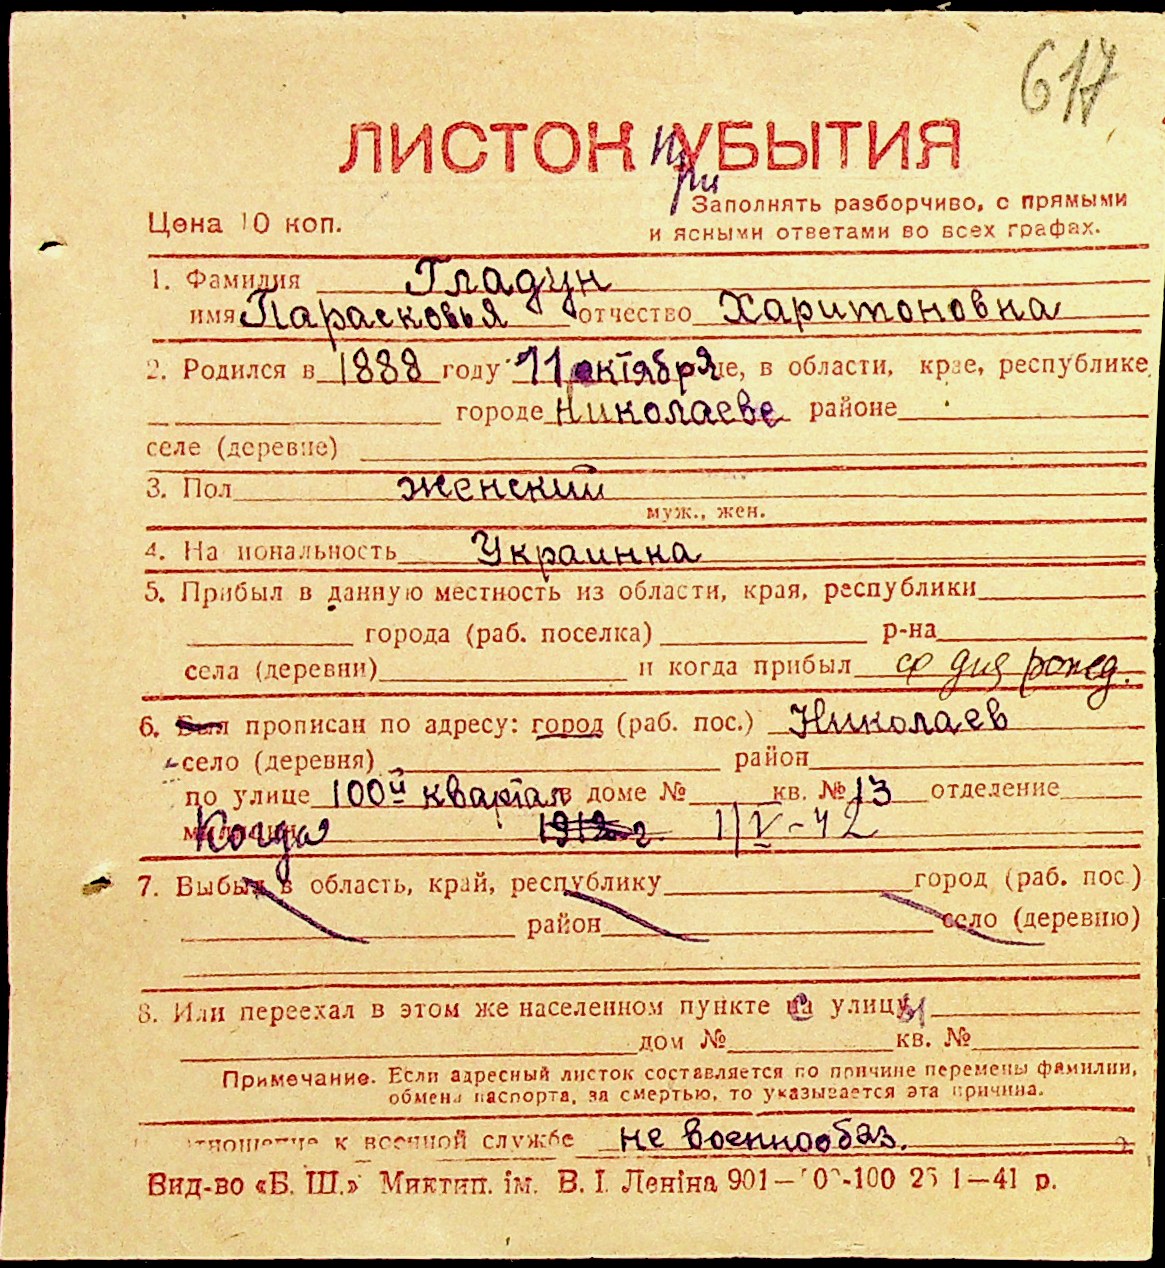 617
ЛИСТОК при УБЫТИЯ
Заполнять разборчиво, с прямыми
Цена 10 коп. и ясными ответами во всех графах.
1. Фамилия Гладун
имя Парасковья отчество Харитоновна
2. Родился в 1888 году 11 октября це, в области, крае, республике
городе Николаеве районе
селе (деревне)
3. Пол женский
муж., жен.
4. На иональность Украинка
5. Прибыл в данную местность из области, края, республики
города (раб. поселка) р-на
села (деревни) и когда прибыл со дня рожд.
6. Был прописан по адресу: город (раб. пос.) Николаев
село (деревня) район
по улице 100й квартал в доме № кв. № 13 отделение
Когда 1912 г. 1/V-42
7. Выбыл в область, край, республику город (раб. пос.)
район село (деревню)
8. Или переехал в этом же населенном пункте с улицы
дом № кв. №
Примечание. Если адресный листок составляется по причине перемены фамилии,
обмена паспорта, за смертью, то указывается эта причина.
тношение к военной службе не военнообяз.
Вид-во «Б. Ш.» Миктип. ім. В. І. Леніна 901— 0 -100 25 1—41 р.